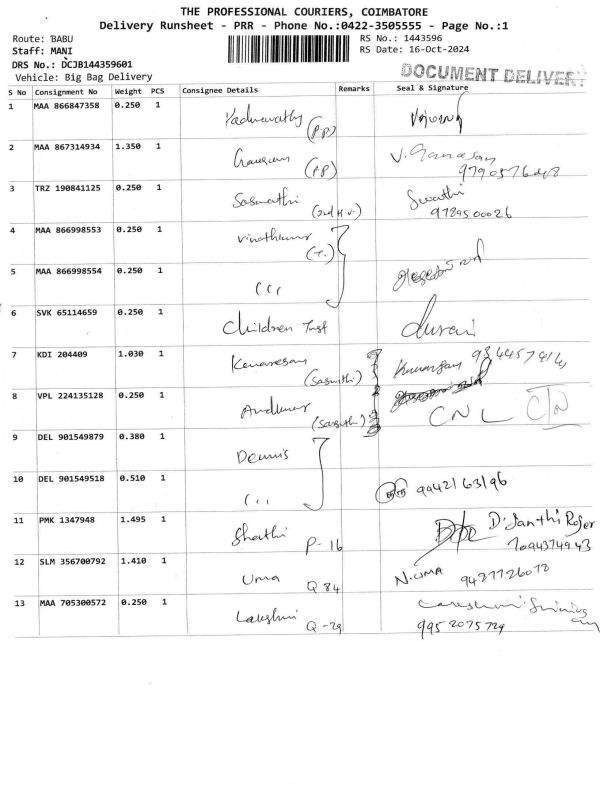 THE PROFESSIONAL COURIERS, COIMBATORE
Delivery Runsheet - PRR - Phone No.:0422-3505555 - Page No.:1
Route: BABU
RS No.: 1443596
Staff: MANI
RS Date: 16-Oct-2024
DRS No.: DCJB144359601
Vehicle: Big Bag Delivery
DOCUMENT DELIVERY
S No Consignment No Weight PCS Consignee Details Remarks Seal & Signature
1 MAA 866847358 0.250 1 (PP)
2 MAA 867314934 1.350 1 (PP) V. Ganesan
3 TRZ 190841125 0.250 1 Saswathi Swathi
9789500026
4 MAA 866998553 0.250 1 (T.)
5 MAA 866998554 0.250 1
6 SVK 65114659 0.250 1 Children Trust Durai
7 KDI 204409 1.030 1
8 VPL 224135128 0.250 1 CNL CTN
9 DEL 901549879 0.380 1 Dennis
10 DEL 901549518 0.510 1 9942163196
11 PMK 1347948 1.495 1 Shathi P-16 D. Janthi Roser
7094374943
12 SLM 356700792 1.410 1 Uma Q 84 N. UMA 9437726078
13 MAA 705300572 0.250 1 Lakshmi Q-29
9952075729